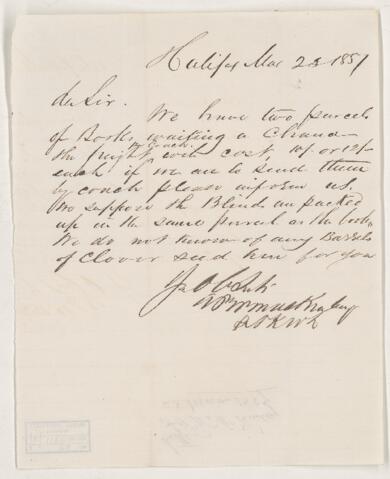 Halifax Mar 23 1857
dr Sir.
We have two parcels
of Books waiting a Chance
the freight by Coach will cost 10/- or 12/-
each if we are to send them
by coach please inform us,
We suppose the Blinds are packed
up in the same parcel as the books
We do not know of any Barrels
of Clover seed here for you
Yr Ob St